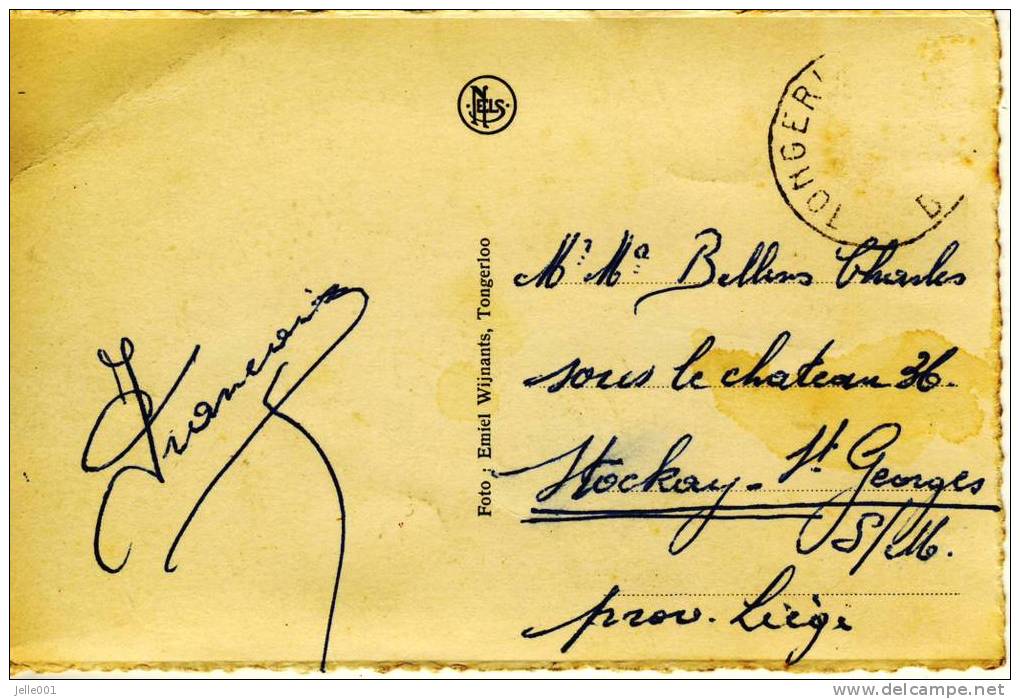 NELS
TONGER
B
Foto : Emiel Wijnants, Tongerloo
Mr Ma Bellens Charles
sous le chateau 36.
Stockay - St Georges
S/M.
prov. Liège
jelle001
delcampe.net